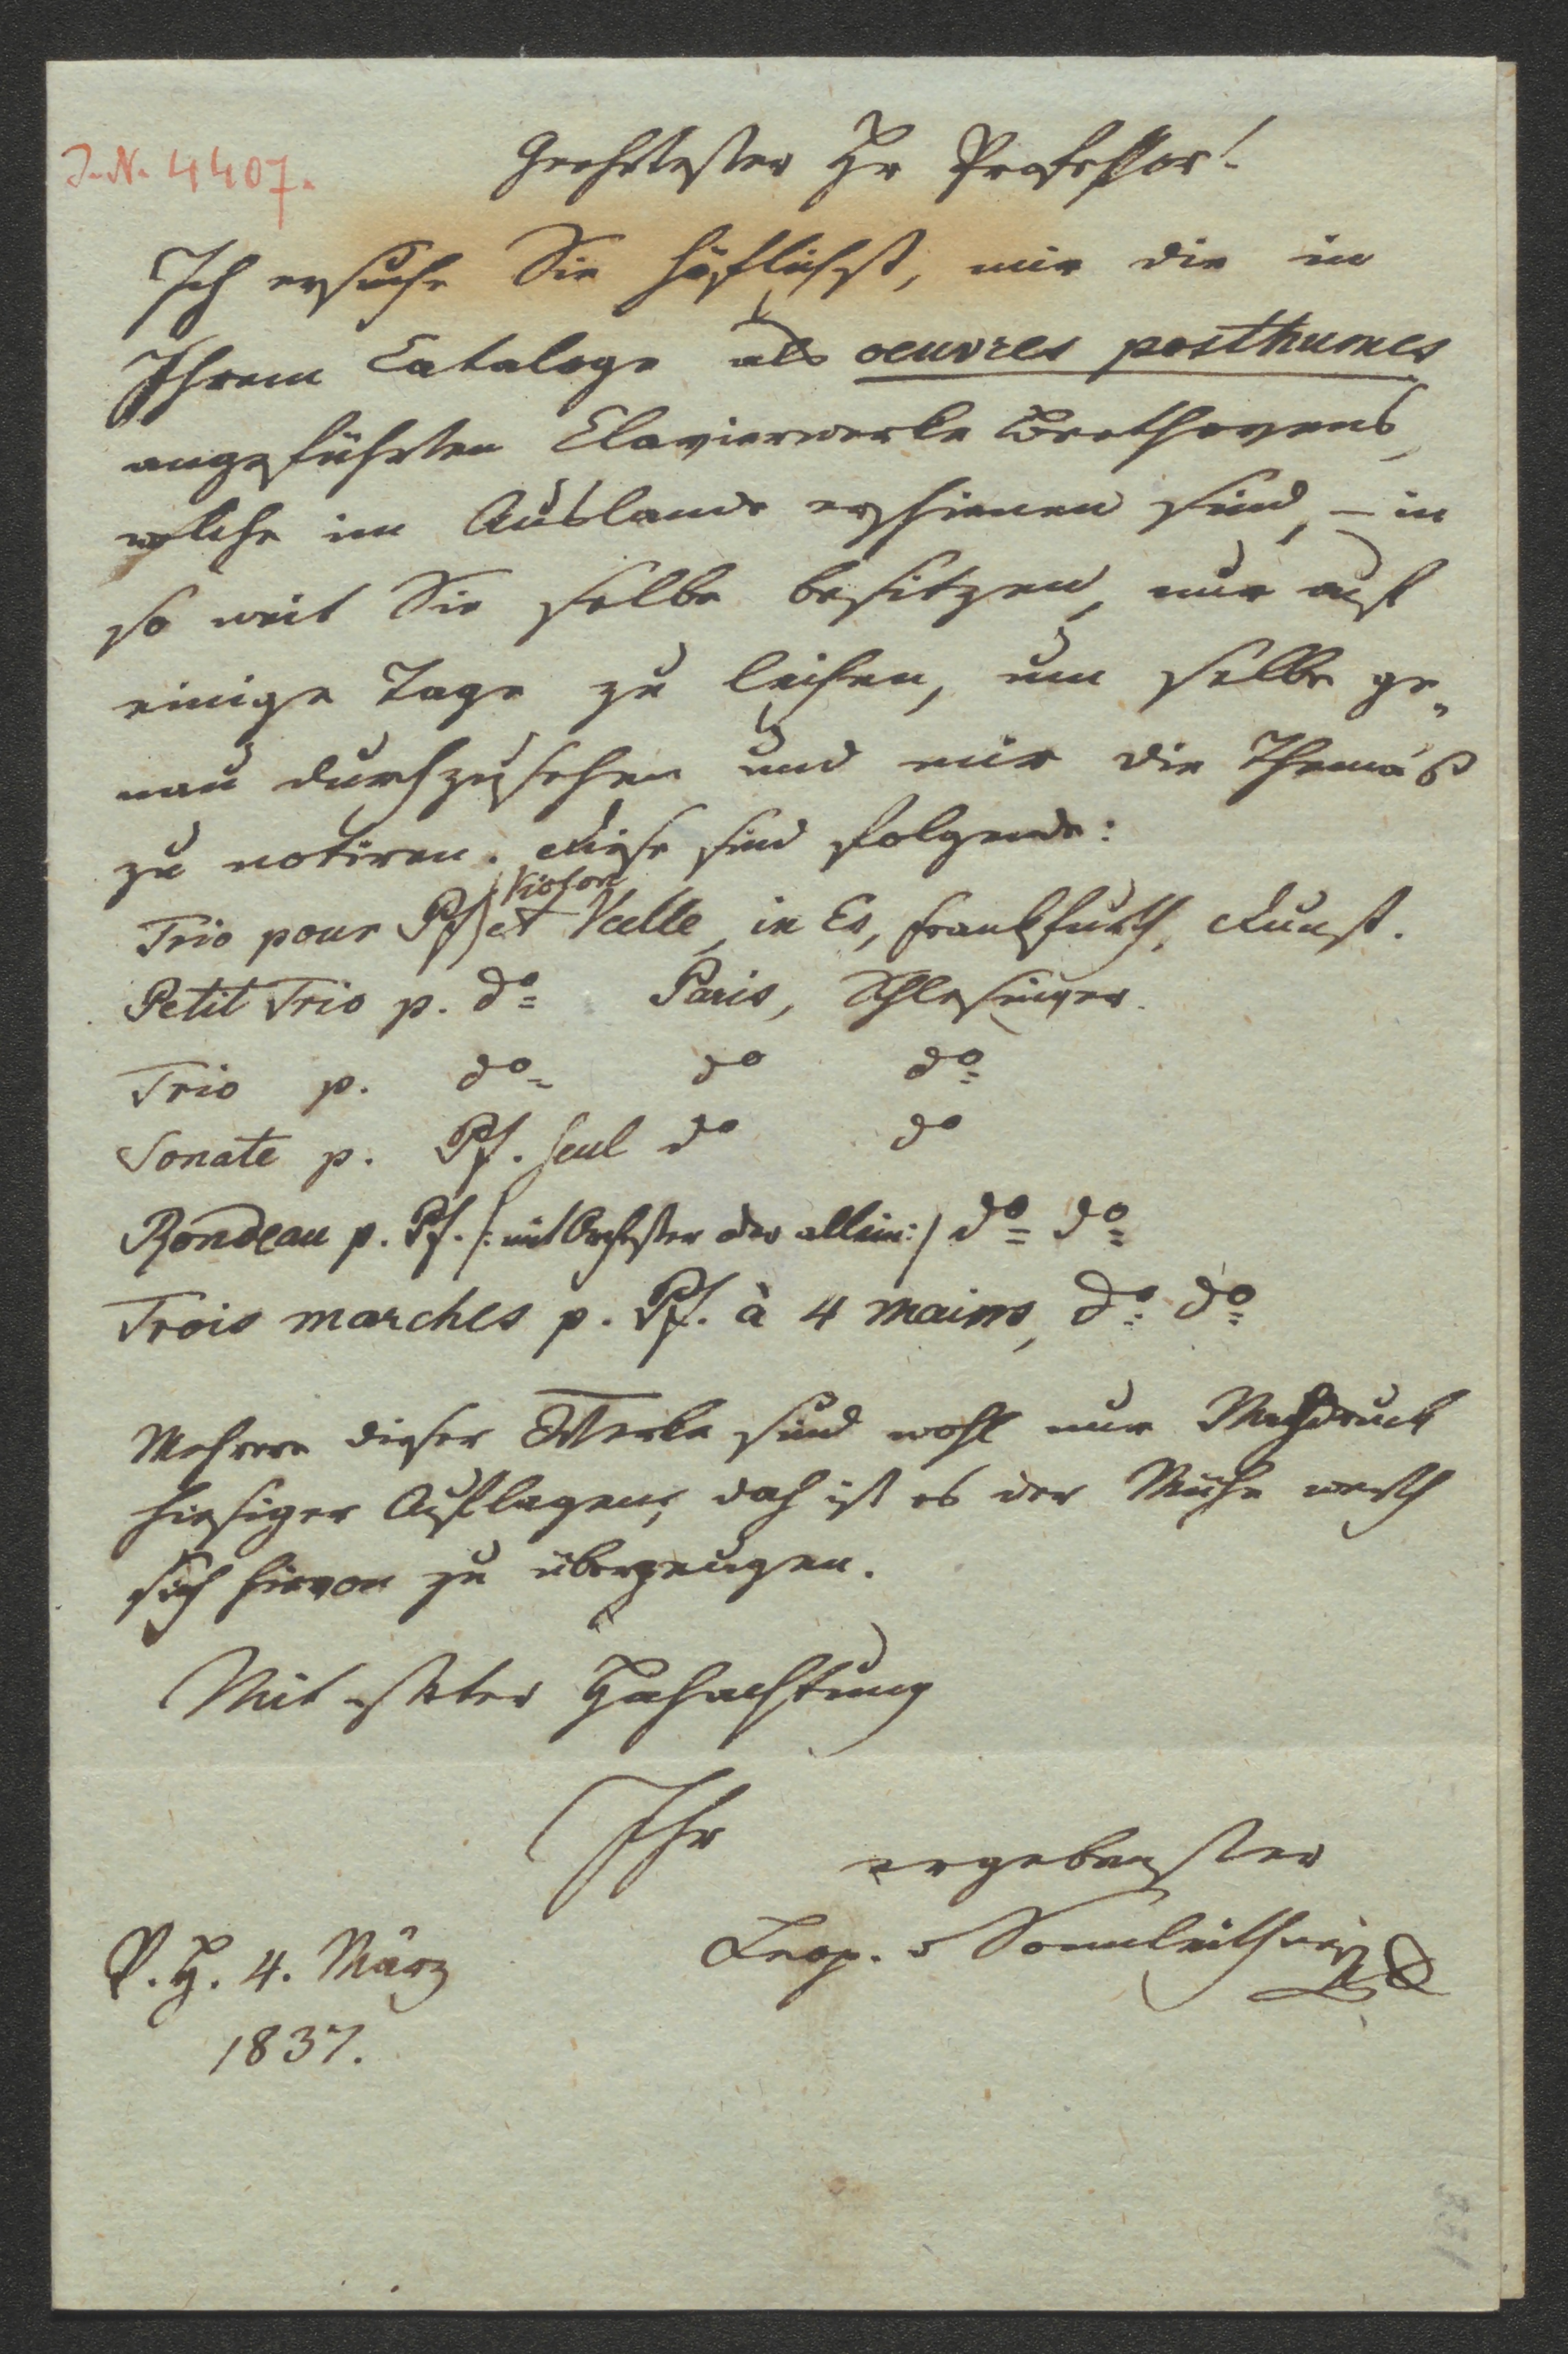 J. N. 4407.
Geehrtester Hr Professor!
Ich ersuche Sie höflichst, mir die in
Ihrem Cataloge als oeuvres posthumes
angeführten Clavierwerke Beethovens,
welche im Auslande erschienen sind, – in
so weit Sie selbe besitzen, nur auf
einige Tage zu leihen, um selbe ge„
nau durchzusehen und mir die Thema's
zu notiren. Diese sind folgende:
Trio pour Pf, Violon et Vcelle, in Es, Frankfurth, Dunst.
Petit Trio p. do Paris, Schlesinger.
Trio p. do do do
Sonate p. Pf. seul do do
Rondeau p. Pf. /: mit Orchester oder allein :/ do do
Trois marches p. Pf. à 4 mains, do do
Mehrere dieser Werke sind wohl nur Nachdruck
hiesiger Auflagen, doch ist es der Mühe werth
sich hievon zu überzeugen.
Mit steter Hochachtung
Ihr
ergebenster
Leop. v Sonnleithner
V. H. 4. März
1837.